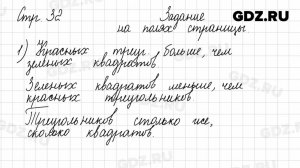 GDZ.RU
Стр. 32 Задание
на полях страницы
1) Красных треуг. больше, чем
зеленых квадратов
Зеленых квадратов меньше, чем
красных треугольников
Треугольников столько же,
сколько квадратов.